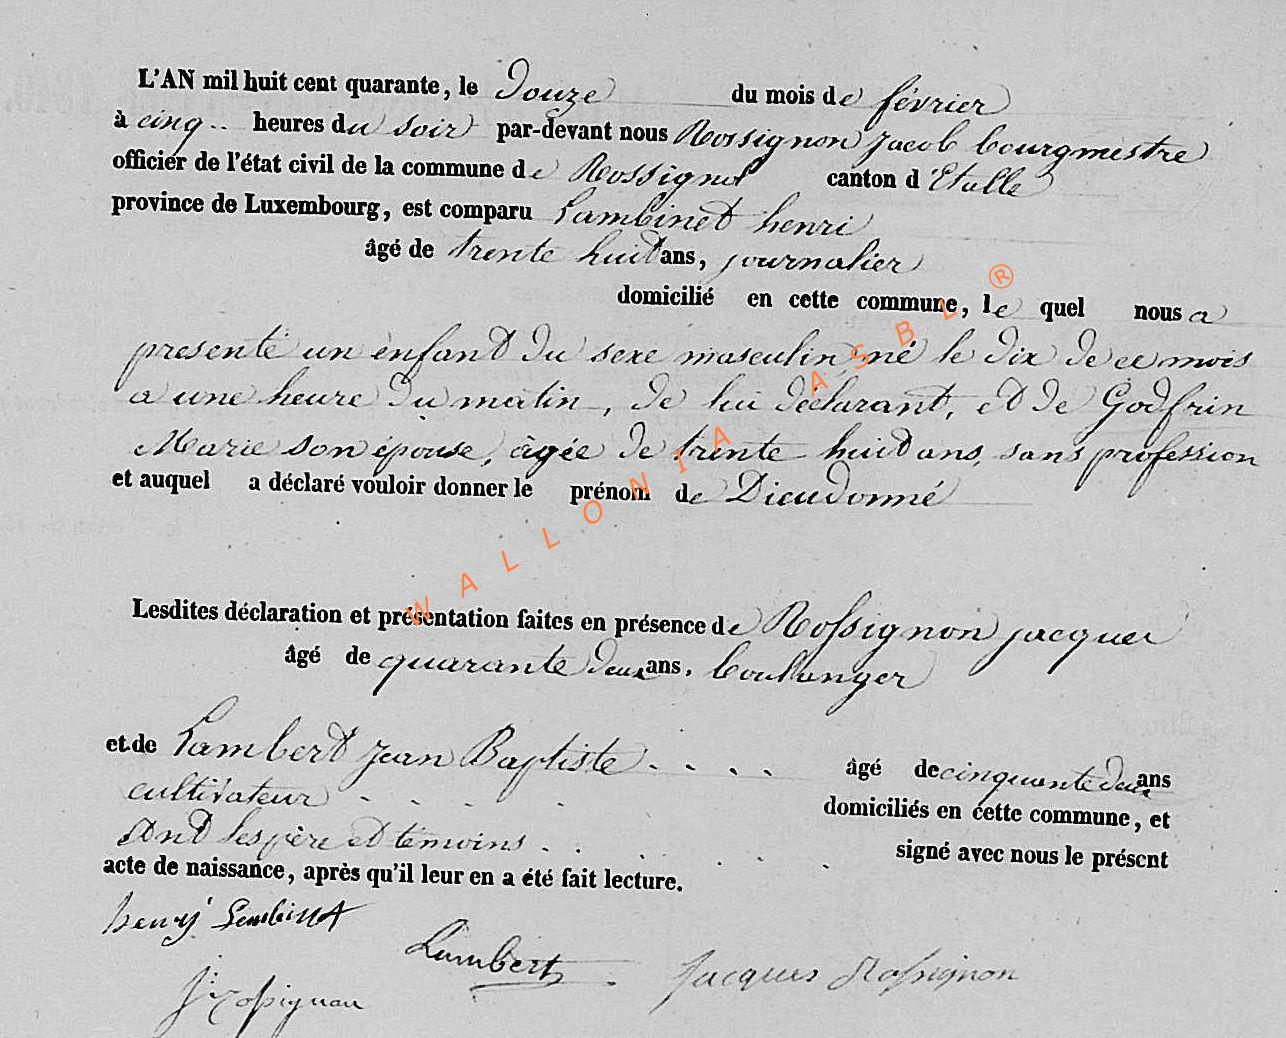 L'AN mil huit cent quarante, le douze du mois de février
à cinq .. heures du soir par-devant nous Rossignon Jacob bourgmestre
officier de l'état civil de la commune de Rossignol canton d'Etalle
province de Luxembourg, est comparu Lambinet henri
âgé de trente huit ans, journalier
domicilié en cette commune, le quel nous a
presenté un enfant du sexe masculin, né le dix de ce mois
a une heure du matin, de lui déclarant, et de Godfrin
Marie son épouse, âgée de trente huit ans, sans profession
et auquel a déclaré vouloir donner le prénom de Dieudonné
Lesdites déclaration et présentation faites en présence de Rossignon jacques
âgé de quarante deux ans, boulanger
et de Lambert jean Baptiste . . . . âgé de cinquante deux ans
cultivateur . . . . domiciliés en cette commune, et
Ont les père et témoins . . . . . . signé avec nous le présent
acte de naissance, après qu'il leur en a été fait lecture.
henry Lembinet
Lambert Jacques Rossignon
J. Rossignon
WALLONIA ASBL ®